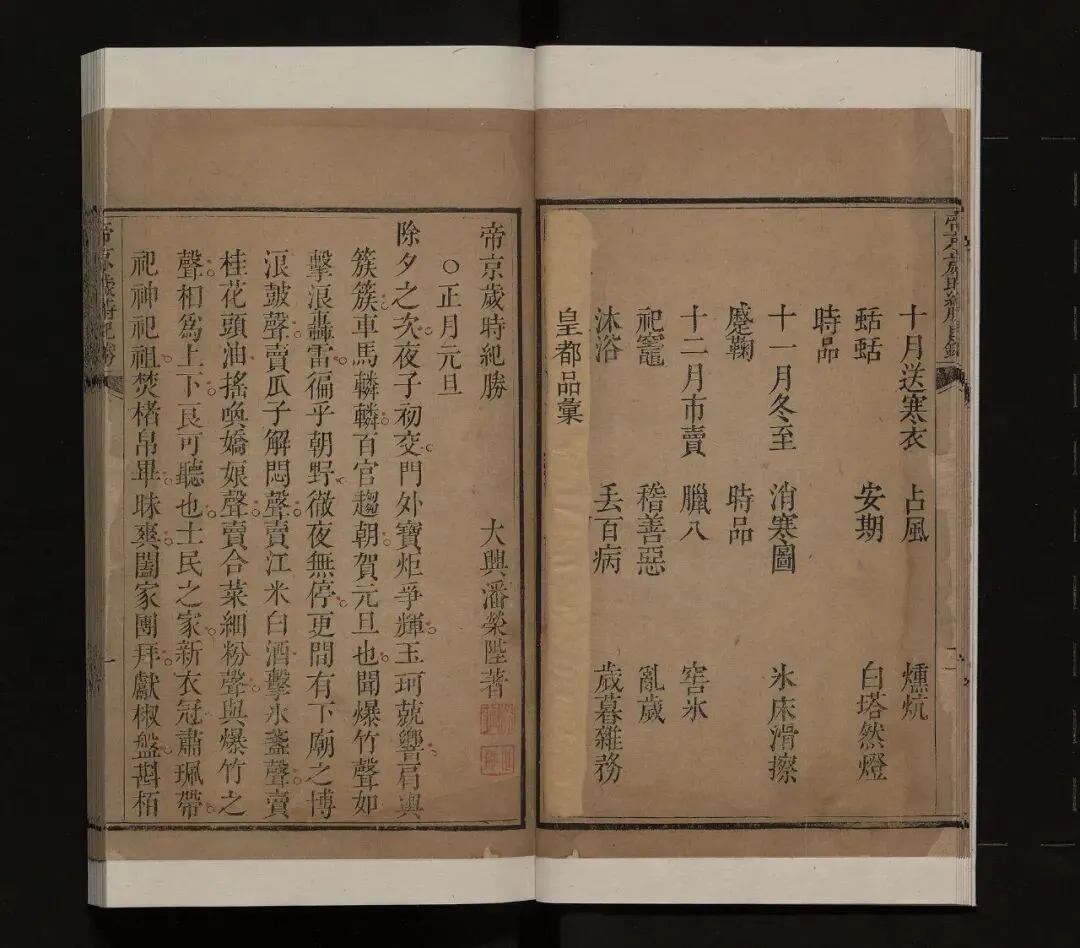 帝京歲時紀勝目錄
十月送寒衣 占風 燻炕
蛞蛞 安期 白塔然燈
時品
十一月冬至 消寒圖 氷床滑擦
蹙鞠 時品
十二月市賣 臘八 窖氷
祀竈 稽善惡 亂歲
沐浴 丢百病 歲暮雜務
皇都品彙
帝京歲時紀勝
大興潘榮陛著
○正月元旦
除夕之次夜子初交門外寶炬爭輝玉珂競響肩輿
簇簇車馬轔轔百官趨朝賀元旦也聞爆竹聲如
擊浪轟雷徧乎朝野徹夜無停更間有下廟之博
浪鼓聲賣瓜子解悶聲賣江米白酒擊氷盞聲賣
桂花頭油搖喚嬌娘聲賣合菜細粉聲與爆竹之
聲相爲上下良可聽也士民之家新衣冠肅珮帶
祀神祀祖焚楮帛畢昧爽闔家團拜獻椒盤斟栢
帝京歲時紀勝
一